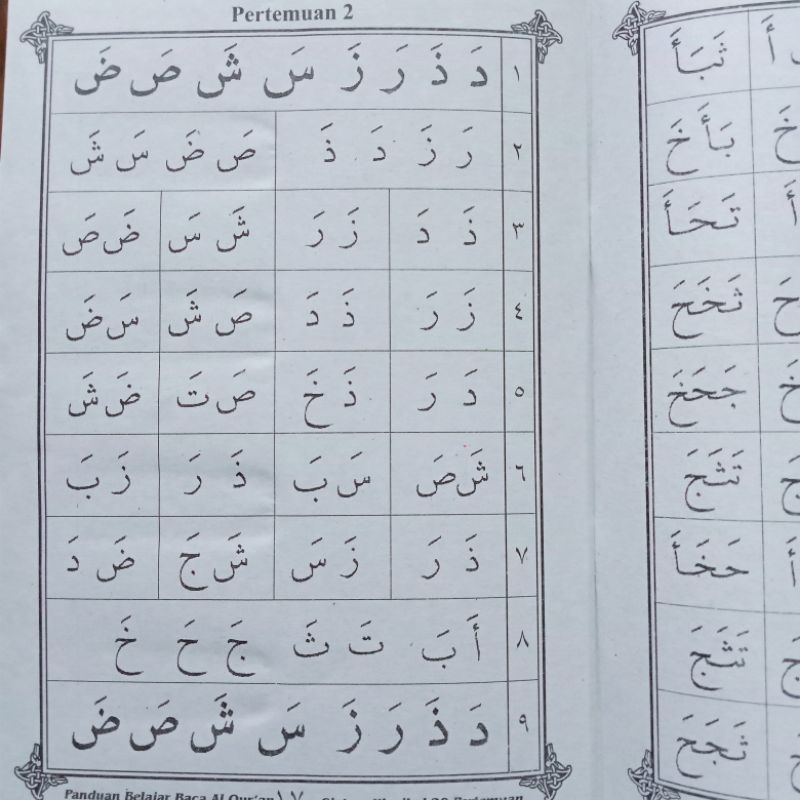 Pertemuan 2
١ دَ ذَ رَ زَ سَ شَ صَ ضَ
٢ رَ زَ دَ ذَ صَ ضَ سَ شَ
٣ ذَ دَ زَ رَ شَ سَ ضَ صَ
٤ زَ رَ ذَ دَ صَ شَ سَ ضَ
٥ دَ رَ ذَ خَ صَ تَ ضَ شَ
٦ شَ صَ سَ بَ ذَ رَ زَ بَ
٧ ذَ رَ زَ سَ شَ جَ ضَ دَ
٨ أَ بَ تَ ثَ جَ حَ خَ
٩ دَ ذَ رَ زَ سَ شَ صَ ضَ
Panduan Belajar Baca Al Qur'an ١٧
ثَبَأَ
بَأَخَ
تَحَأَ
ثَخَحَ
جَحَخَ
تَثَجَ
حَخَأَ
تَثَجَ
ثَجَحَ